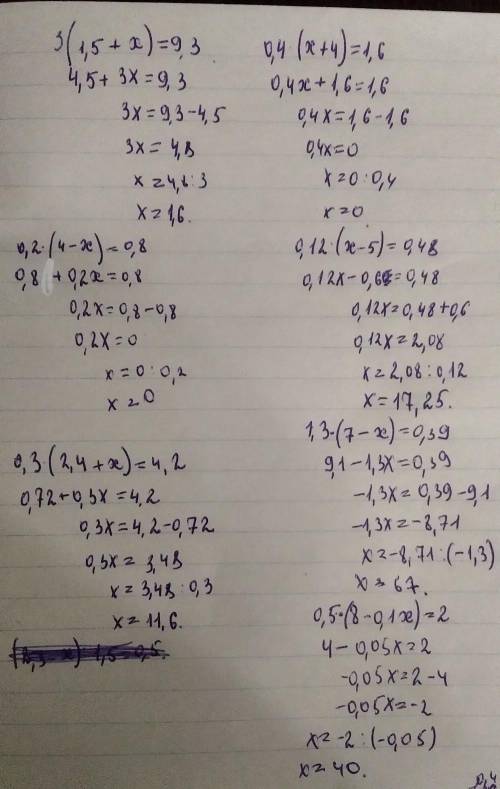 3(1,5+x)=9,3
4,5+3x=9,3
3x=9,3-4,5
3x=4,8
x=4,8:3
x=1,6.
0,2·(4-x)=0,8
0,8+0,2x=0,8
0,2x=0,8-0,8
0,2x=0
x=0:0,2
x=0
0,3·(2,4+x)=4,2
0,72+0,3x=4,2
0,3x=4,2-0,72
0,3x=3,48
x=3,48:0,3
x=11,6.
(2,3-x) 1,5=0,5.
0,4·(x+4)=1,6
0,4x+1,6=1,6
0,4x=1,6-1,6
0,4x=0
x=0:0,4
x=0
0,12·(x-5)=0,48
0,12x-0,6=0,48
0,12x=0,48+0,6
0,12x=2,08
x=2,08:0,12
x=17,25.
1,3·(7-x)=0,39
9,1-1,3x=0,39
-1,3x=0,39-9,1
-1,3x=-8,71
x=-8,71:(-1,3)
x=67.
0,5·(8-0,1x)=2
4-0,05x=2
-0,05x=2-4
-0,05x=-2
x=-2:(-0,05)
x=40.
0,4